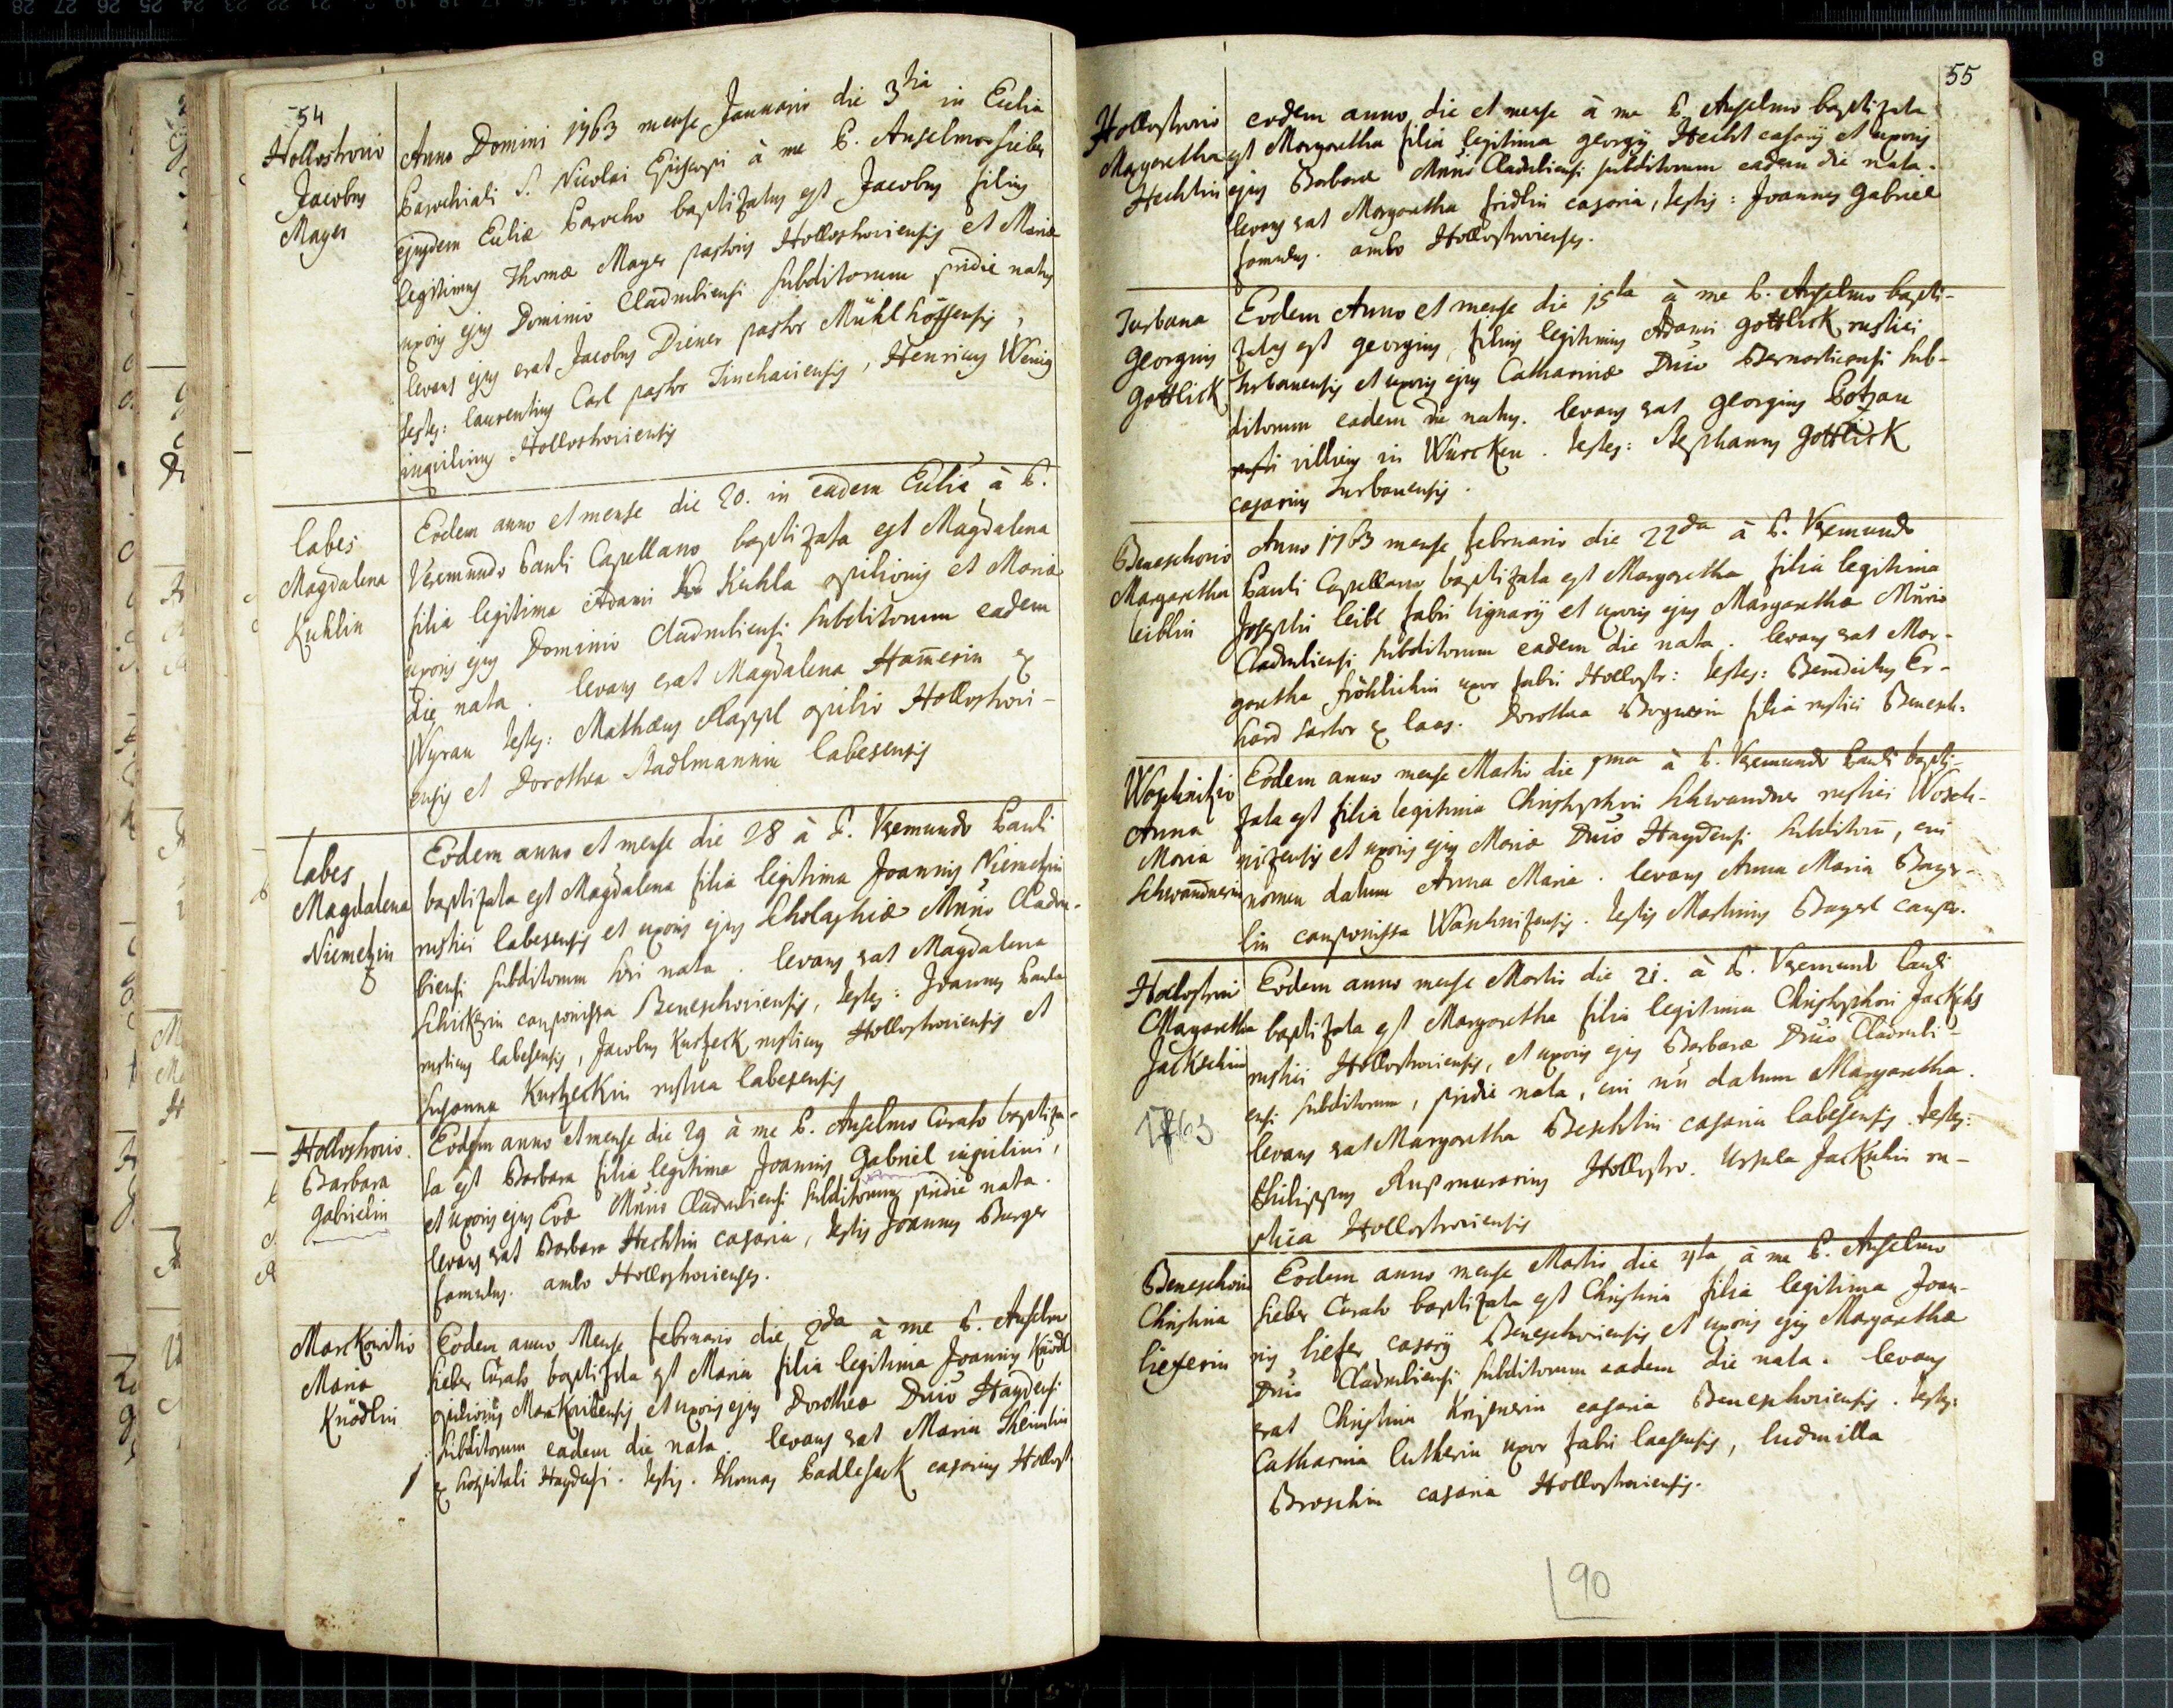 54
Hollostrovio
Jacobus
Mayer
Anno Domini 1763 mense Januario die 3tia in Eclia
Parochiali S. Nicolai Episcopi à me P. Anselmo Sieber
ejusdem Ecliae Parocho baptizatus est Jacobus filius
legitimus Thomae Mayer pastoris Hollostroviensis et Mariae
uxoris ejus Dominio Cladrubiensi subditorum pridie natus
levans ejus erat Jacobus Diener pastor Mühlhöffensis,
testes: Laurentius Carl pastor Tinchaviensis, Henricus Wenig
inquilinus Hollostroviensis
Labes
Magdalena
Kuhlin
Eodem anno et mense die 20. in eadem Eclia à P.
Veremundo Pauli Capellano baptizata est Magdalena
filia legitima Adami Kuhla opilionis et Mariae
uxoris ejus Dominio Cladrubiensi subditorum eadem
die nata. levans erat Magdalena Hamerin ex
Wyran testes: Mathaeus Rappl opilio Hollostrovi-
ensis et Dorothea Stadlmannin Labesensis
Labes
Magdalena
Niemetzin
Eodem anno et mense die 28 à P. Veremundo Pauli
baptizata est Magdalena filia legitima Joannis Niemetzin
rustici Labesensis et uxoris ejus Scholasticae Dnio Cladru-
biensi subditorum heri nata. levans erat Magdalena
Schickerin cauponissa Beneschoviensis, testes: Joannes Paula
rusticus Labesensis, Jacobus Kurzeck rusticus Hollostroviensis et
Susanna Kurzeckin rustica Labesensis
Hollostrovio.
Barbara
Gabrielin
Eodem anno et mense die 29 à me P. Anselmo Curato baptiza-
ta est Barbara filia legitima Joannis Gabriel inquilini,
et uxoris ejus Evae Dnio Cladrubiensi subditorum pridie nata.
levans erat Barbara Hechtin casaria, testis Joannes Burger
famulus. ambo Hollostrovienses.
Marckowitio
Maria
Knödlin
Eodem anno Mense februario die 2da à me P. Anselmo
Sieber Curato baptizata est Maria filia legitima Joannis Knödl
opilionis Marckovitensis et uxoris ejus Dorotheae Dnio Haydensi
subditorum eadem die nata. levans erat Maria Theimlin
ex hospitali Haydensi. testis. Thomas Padlesack casarius Hollost
55
Hollostrovio
Margaretha
Hechtin
eodem anno, die et mense à me P. Anselmo baptizata
est Margaretha filia legitima georgij Hecht casarij et uxoris
ejus Barbarae Dnio Cladrubiensi subditorum eadem die nata.
levans erat Margaretha fridlin casaria, testis: Joannes Gabriel
famulus. ambo Hollostrovienses.
Turbana
Georgius
Gottlick
Eodem Anno et mense die 15ta à me P. Anselmo bapti-
zatus est georgius, filius legitimus Adami gottlick rustici
Turbanensis et uxoris ejus Catharinae Dnio Bernarticensi sub-
ditorum eadem die natus. levans erat georgius Potzau
villicus in Wurcken. testes: Stephanus gottlick
casarius Turbanensis.
Beneschovio
Margaretha
Leiblin
Anno 1763 mense februario die 22da à P. Veremundo
Pauli Capellano baptizata est Margaretha filia legitima
Josephi Leibl fabri lignarij et uxoris ejus Margarethae Dnio
Cladrubiensi subditorum eadem die nata. levans erat Mar-
garetha fröhlichin uxor fabri Hollostr: testes: Benedictus Er-
hard sartor ex Laas. Dorothea Bognerin filia rustici Benesch.
Woschnitzio
Anna
Maria
Schwandnerin
Eodem anno mense Martio die 7ma à P. Veremundo Pauli bapti-
zata est filia legitima Christophori Schwandner rustici Wosch-
nizensis et uxoris ejus Mariae Dnio Haydensi subditorum, cui
nomen datum Anna Maria. levans Anna Maria Bayr-
lin cauponissa Woschnizensis. testis Martinus Bayerl caupo.
Hollostrovi
Margaretha
Jackschin
1763
Eodem anno mense Martio die 21. à P. Veremund Pauli
baptizata est Margaretha filia legitima Christophori Jackschs
rustici Hollostroviensis, et uxoris ejus Barbarae Dnio Cladrubi-
ensi subditorum, pridie nata, cui nn datum Margaretha.
levans erat Margaretha Beschtin casaria Labesensis. testes:
Philippus Rus murarius Hollostro. Ursula Jackschin ru-
stica Hollostroviensis
Beneschovio
Christina
Lieferin
Eodem anno mense Martio die 31ta à me P. Anselmo
Sieber Curato baptizata est Christina filia legitima Joan-
nis Liefer casarij Beneschoviensis et uxoris ejus Margarethae
Dnio Cladrubiensi subditorum eadem die nata. levans
erat Christina Krisnerin casaria Beneschoviensis. testes:
Catharina Lutherin uxor fabri Laasensis, Ludmilla
Broschin casaria Hollostroviensis.
90